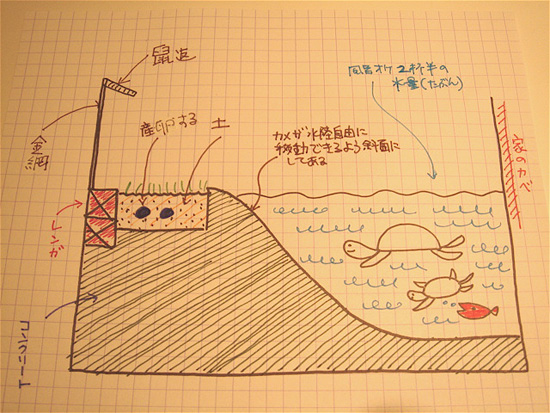 鼠返
金網
産卵する土
カメが水陸自由に
移動できるよう斜面に
してある
風呂オケ2杯半の
水量(たぶん)
家のカベ
レンガ
コンクリート